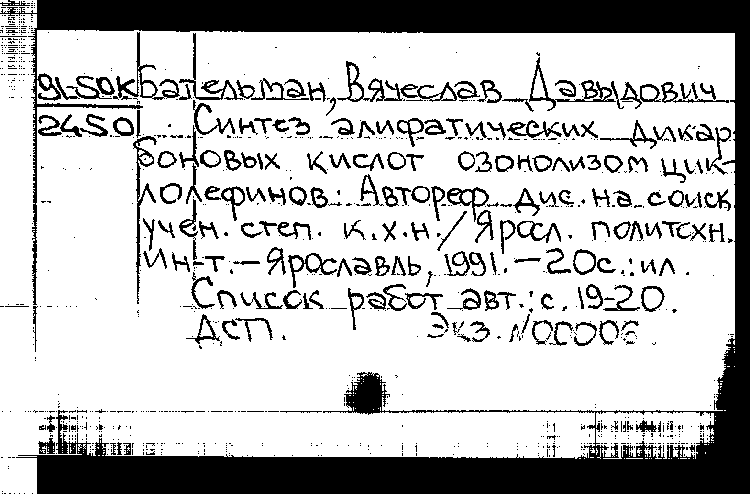 91-50К Бательман, Вячеслав Давыдович
2450 Синтез алифатических дикар-
боновых кислот озонолизом цик-
лолефинов: Автореф. дис. на соиск.
учен. степ. к.х.н./Яросл. политехн.
ин-т. — Ярославль, 1991. — 20с.: ил.
Список работ авт.: с. 19-20.
ДСП. Экз. N00006.